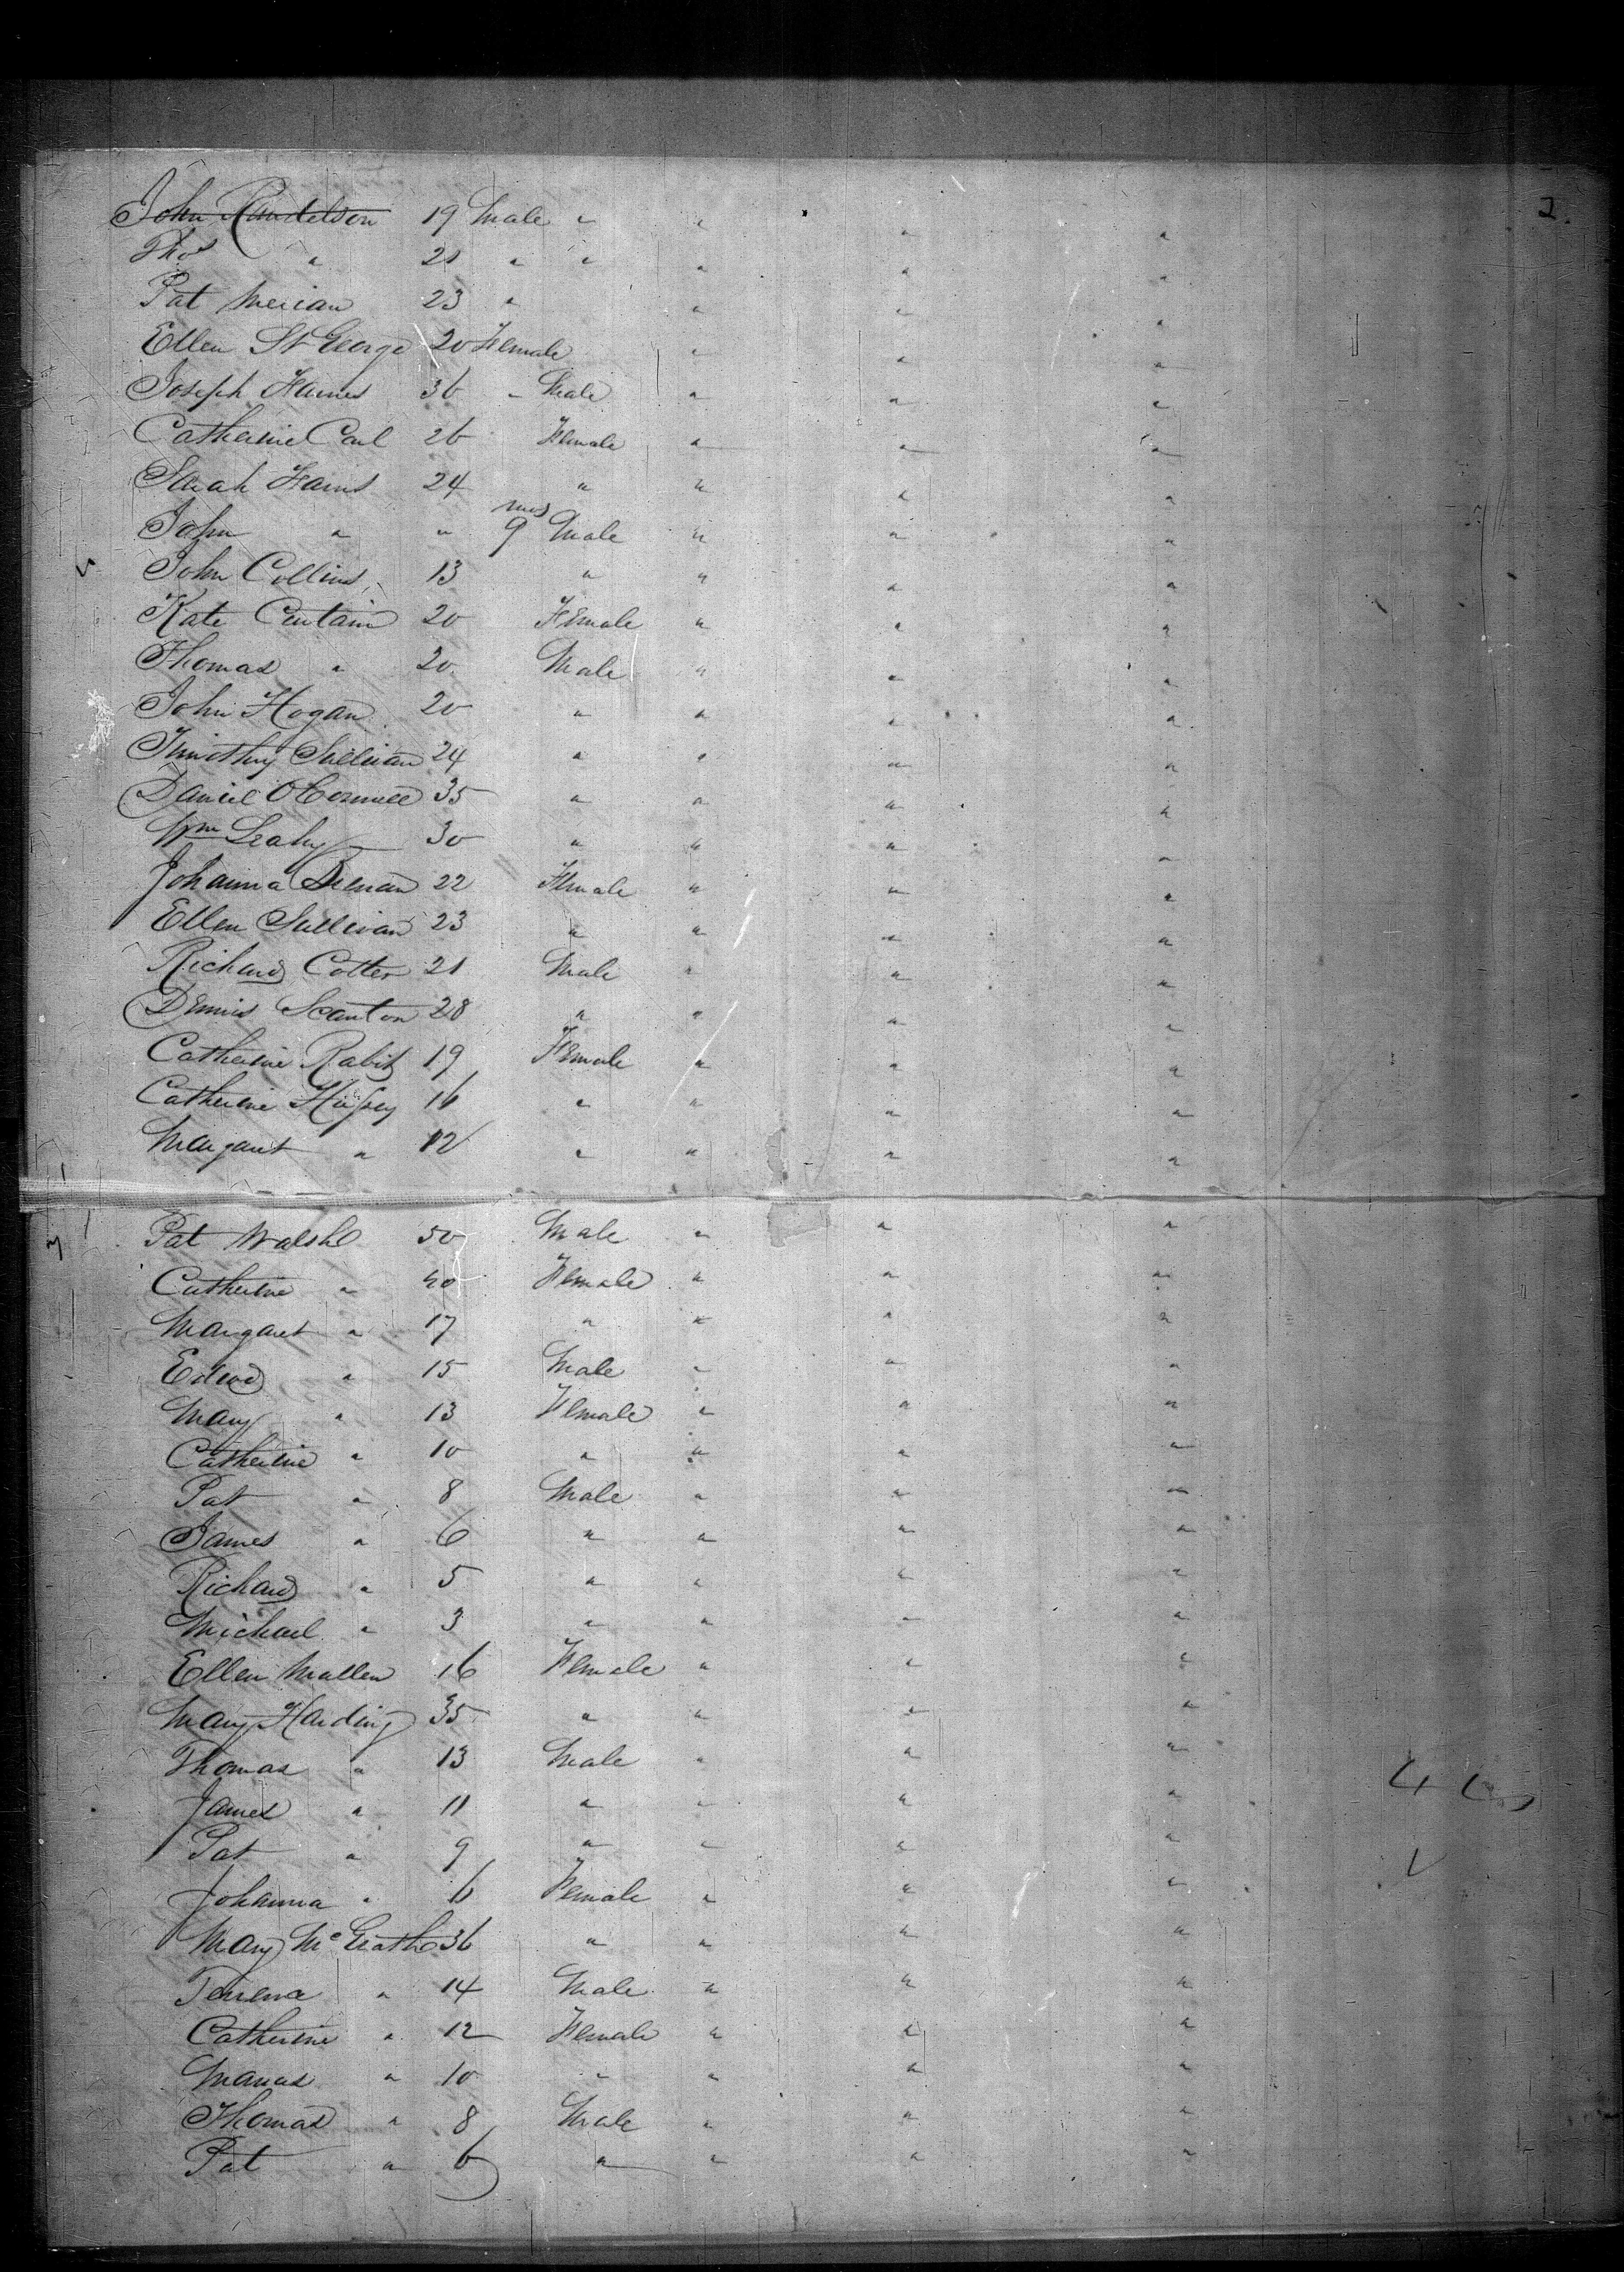 2.
John Randelson 19 Male " " " "
Thos " 21 " " " " "
Pat Merian 23 " " " "
Ellen St George 20 Female " " "
Joseph Hames 36 " Male " " "
Catherine Carl 26 Female " " "
Sarah Hains 24 " " " "
John " " 9 mos Male " " "
John Collins 13 " " " "
Kate 20 Female " " "
Thomas " 20 Male " " "
John Hogan 20 " " " "
Timothy Sullivan 24 " " " "
Daniel O Connell 35 " " " "
Wm Leahy 30 " " " "
Johanna 22 Female " " "
Ellen Sullivan 23 " " " "
Richard Cotter 21 Male " " "
Dennis Scanton 28 " " " "
Catherine Rabit 19 Female " " "
Catherine Hussey 16 " " " "
Margaret " 12 " " " "
Pat Walsh 50 Male " " "
Catherine " 40 Female " " "
Margaret " 17 " " " "
Edwd " 15 Male " " "
Mary " 13 Female " " "
Catherine " 10 " " " "
Pat " 8 Male " " "
James " 6 " " " "
Richard " 5 " " " "
Michael " 3 " " " "
Ellen Mallen 16 Female " " "
Mary Harding 35 " " " "
Thomas " 13 Male " " "
James " 11 " " " "
Pat " 9 " " " "
Johanna " 6 Female " " "
Mary McGrath 36 " " " "
Terrence " 14 Male " " "
Catherine " 12 Female " " "
Manas " 10 " " " "
Thomas " 8 Male " " "
Pat " 6 " " " "